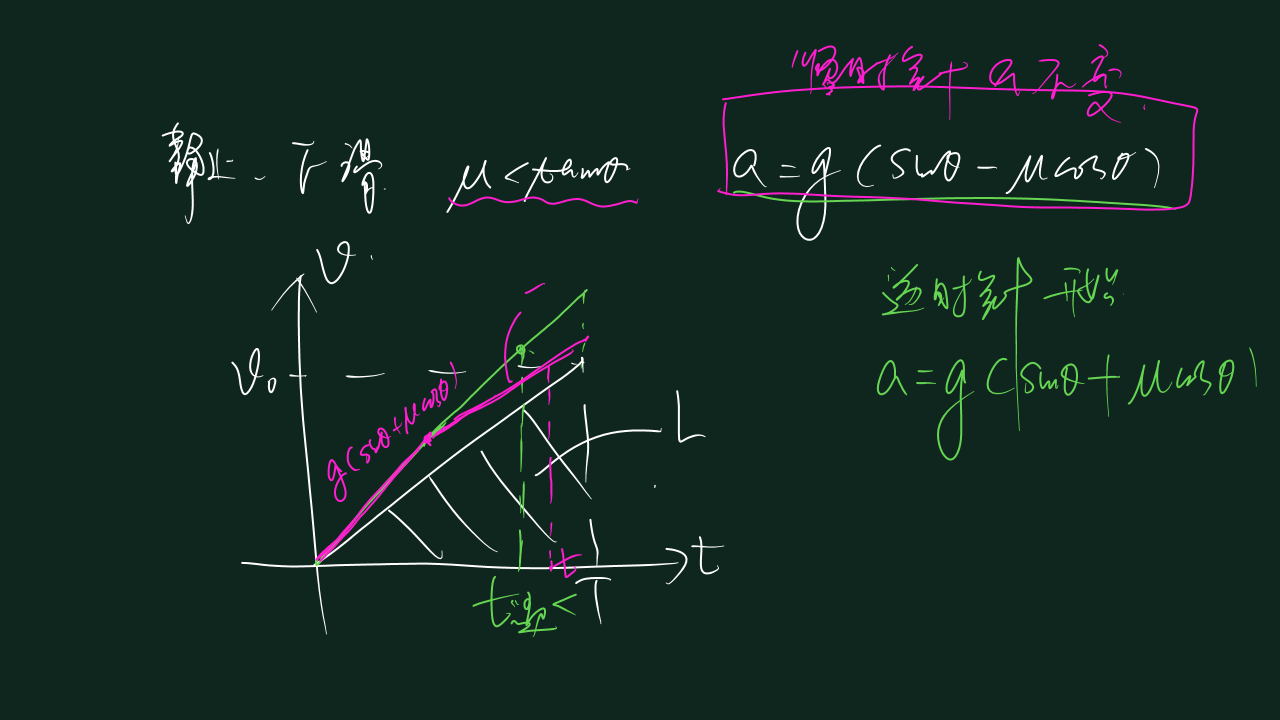 顺时针 a不变
静止、下滑 μ<tanθ a=g(sinθ-μcosθ)
v
逆时针 开始
v₀
a=g(sinθ+μcosθ)
g(sinθ+μcosθ)
L
t
t
t逆<T